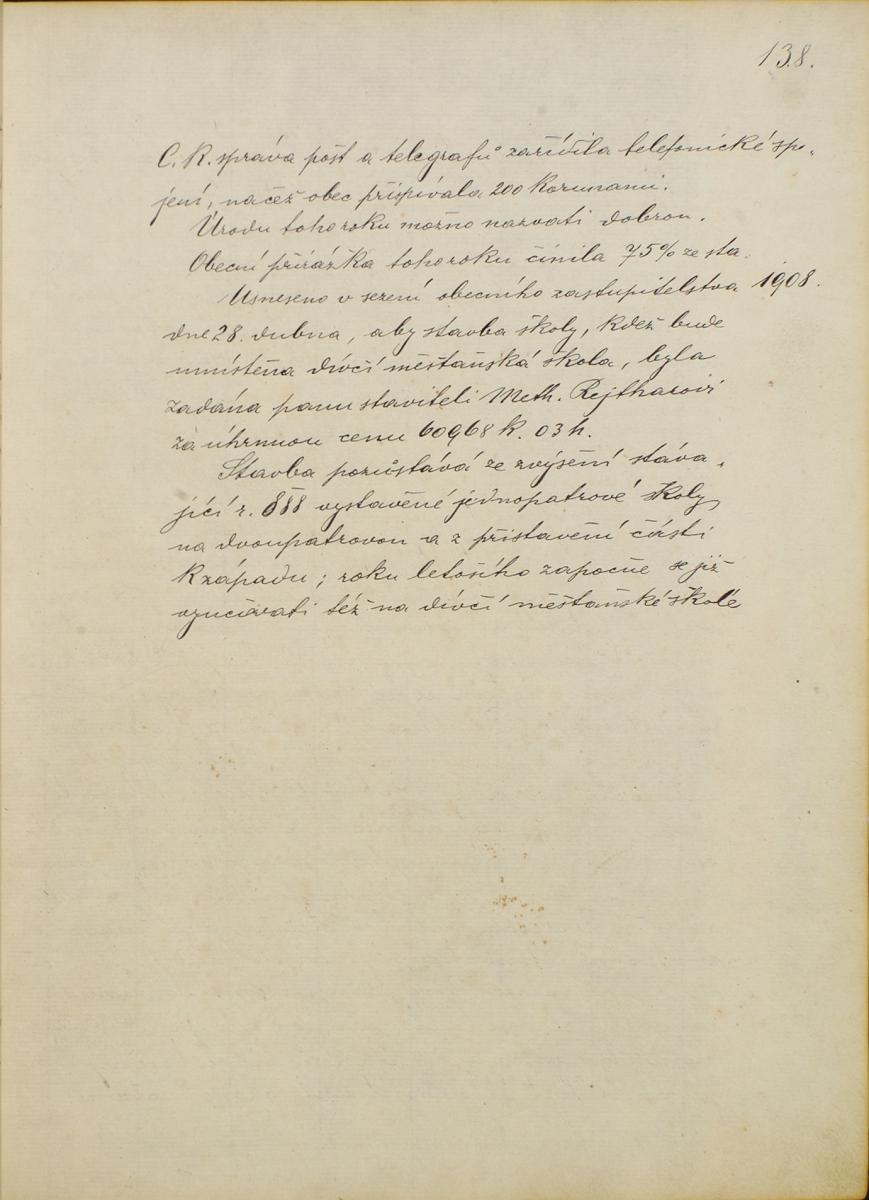 138.
C. K. správa pošt a telegrafů zařídila telefonické spo-
jení, načež obec přispívala 200 korunami.
Úrodu toho roku možno nazvati dobrou.
Obecní přirážka toho roku činila 75% ze sta.
Usneseno v sezení obecního zastupitelstva 1908.
dne 28. dubna, aby stavba školy, kdež bude
umístěna dívčí měšťanská škola, byla
zadána panu staviteli Meth. Rejtharovi
za úhrnnou cenu 60968 k. 03 h.
Stavba pozůstává ze zvýšení stáva-
jící r. 888 vystavěné jednopatrové školy
na dvoupatrovou a z přistavění části
k západu; roku letošího započne se již
vyučovati též na dívčí měšťanské škole